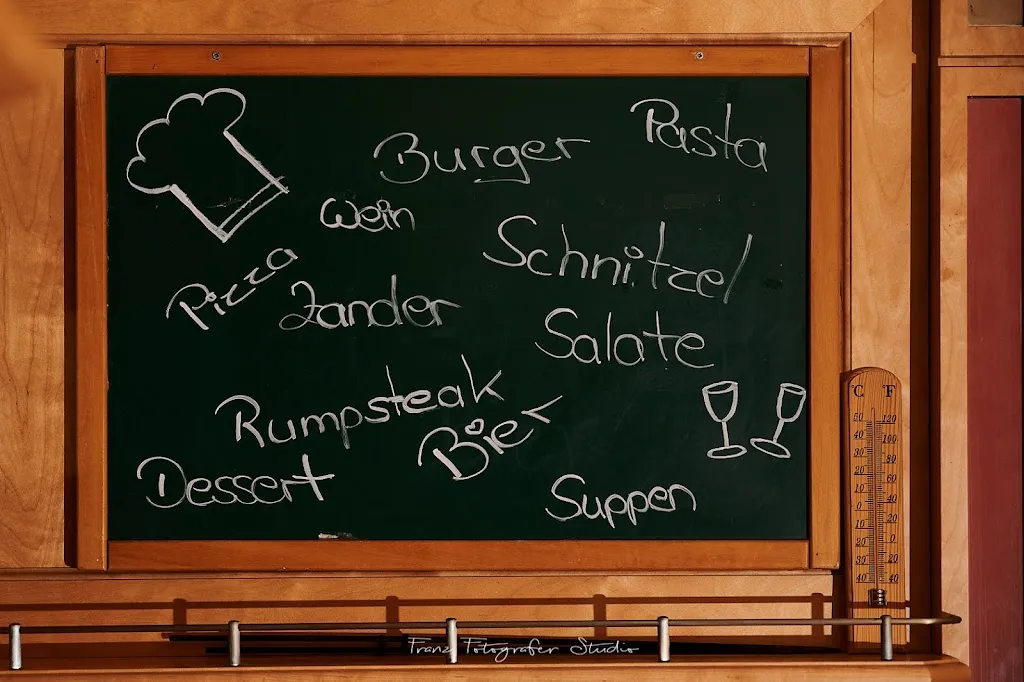 Pasta
Burger
Wein
Schnitzel
Pizza
Zander
Salate
Rumpsteak
Bier
Dessert
Suppen
C F
50 120
40 100
30 80
20 60
10 40
0 20
10 0
20 20
30 40
40
Franz Fotografer Studio